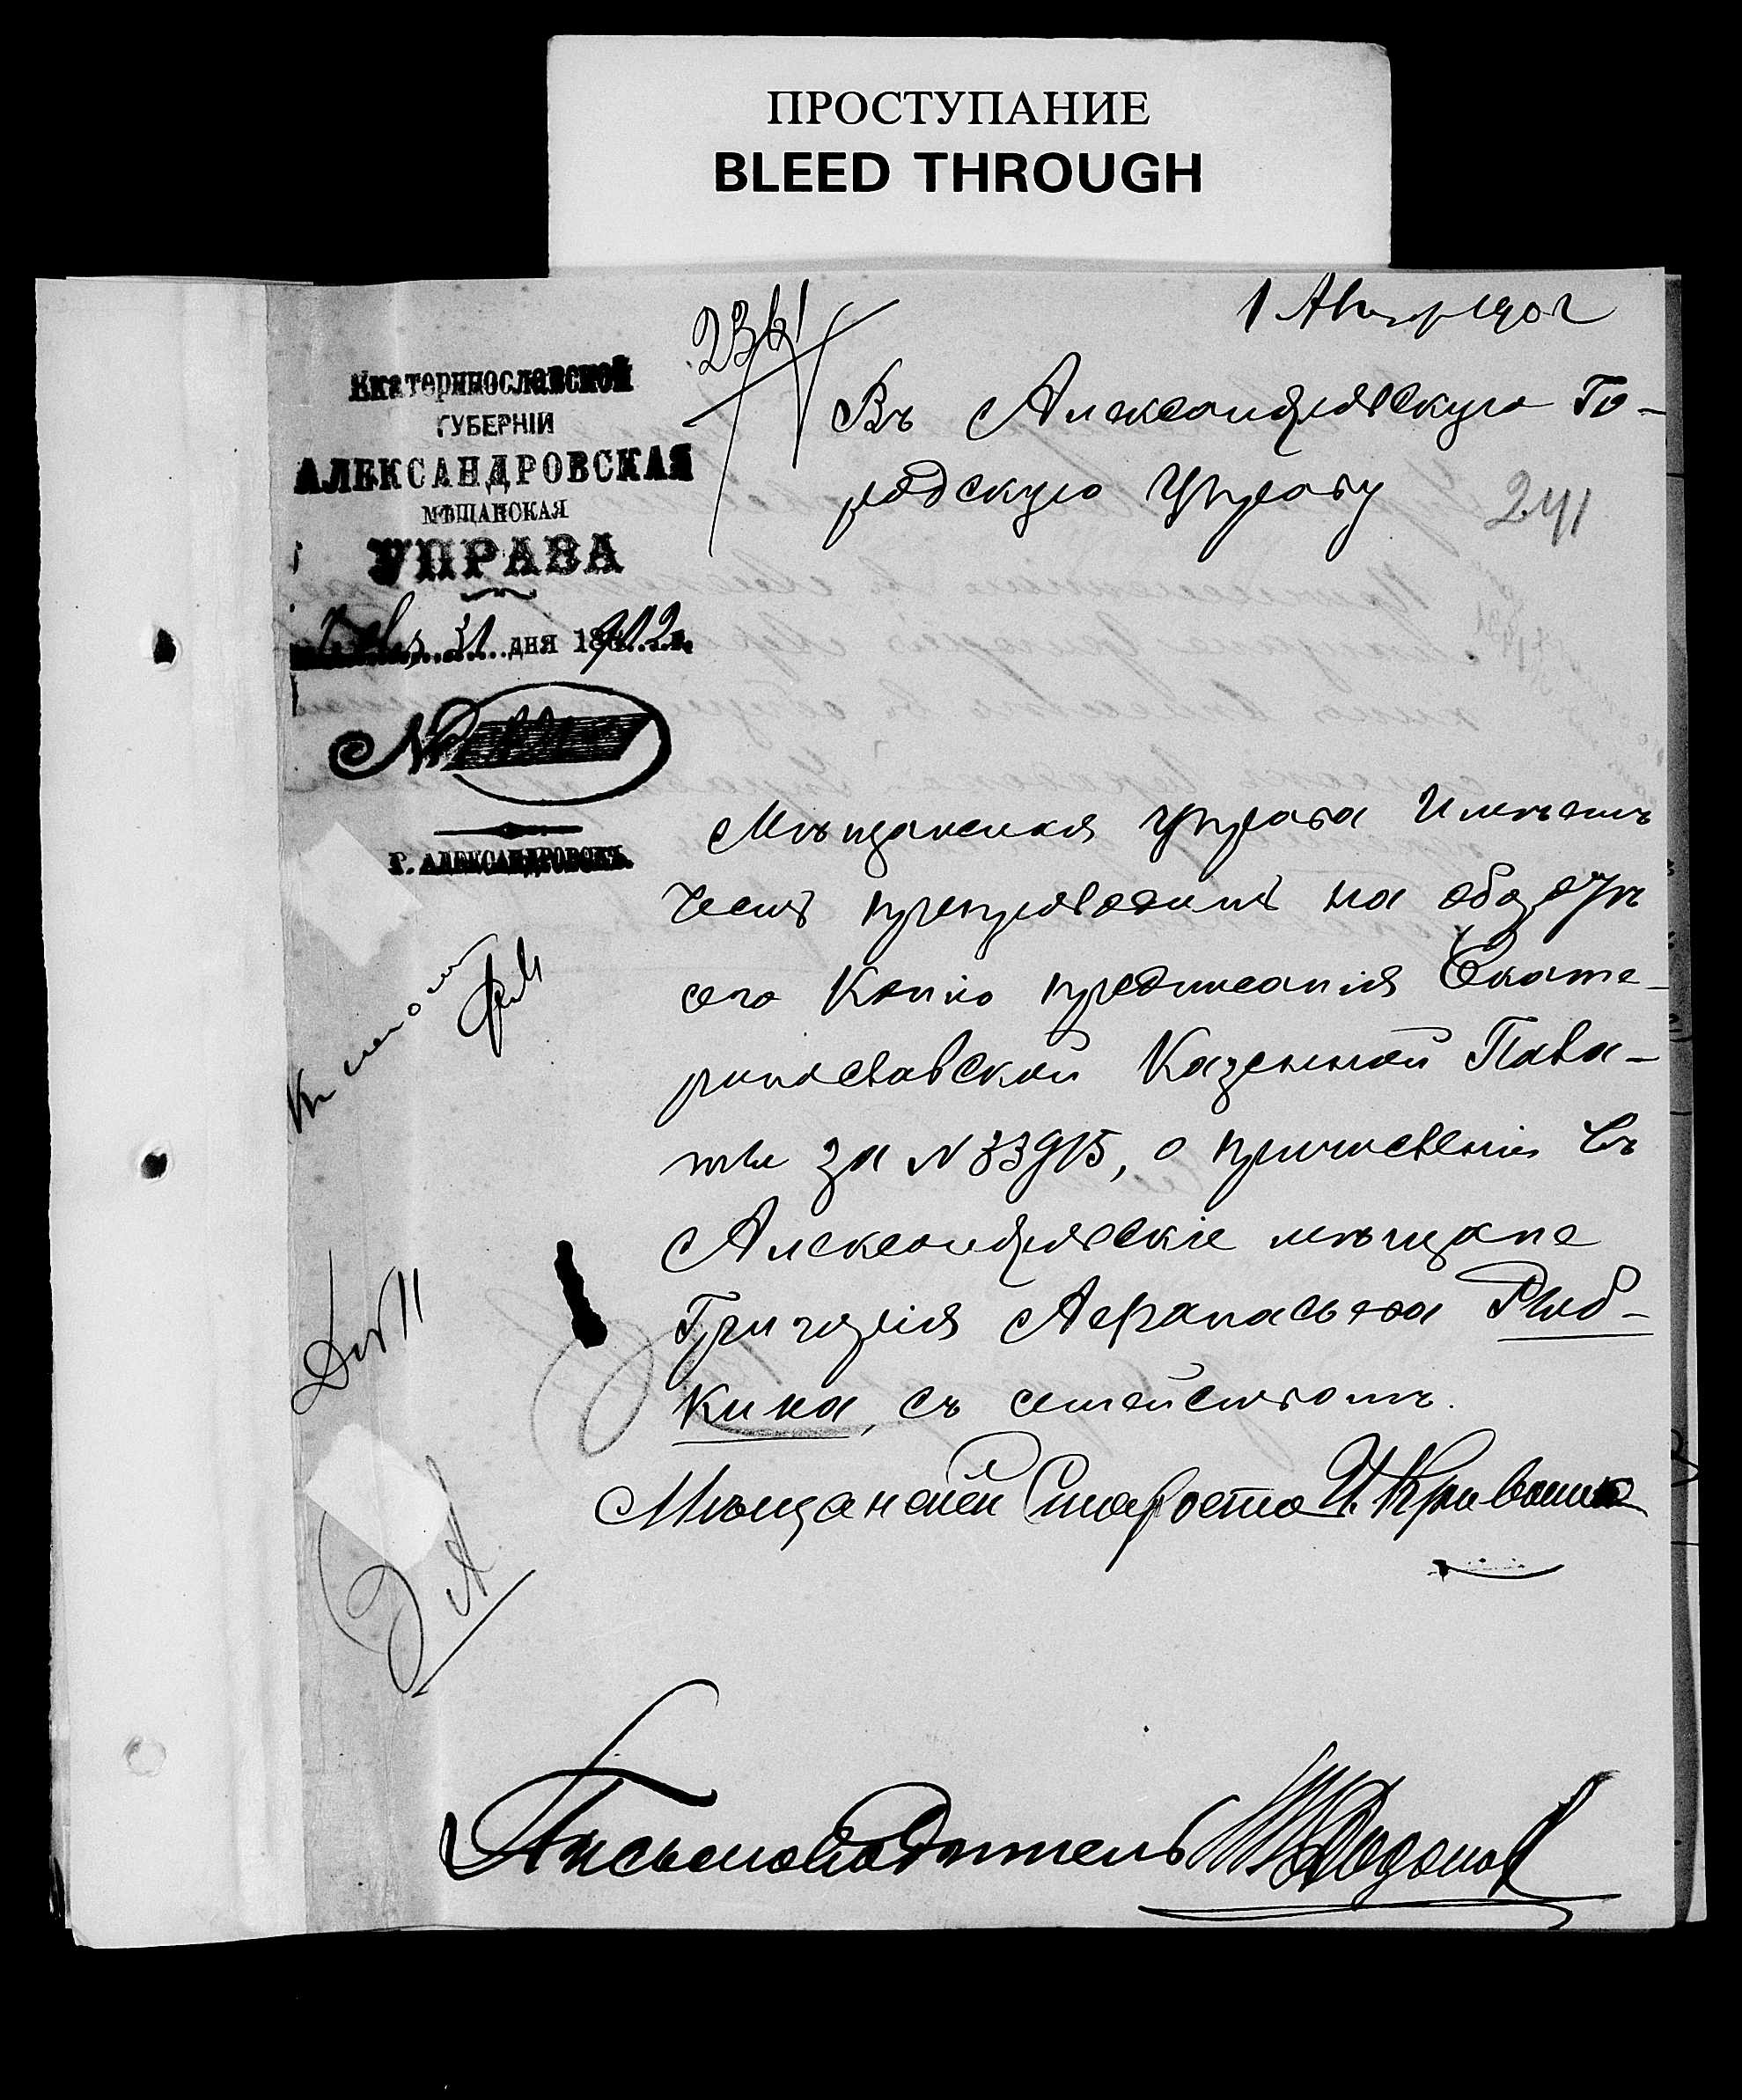 ПРОСТУПАНИЕ
BLEED THROUGH
1
Екатеринославской
ГУБЕРНІИ
АЛЕКСАНДРОВСКАЯ
МѢЩАНСКАЯ
УПРАВА
31 дня 1902 г.
№
Г. АЛЕКСАНДРОВСКЪ.
Въ Александровскую Го-
родскую Управу
241
Мѣщанская Управа Имѣетъ
честь препроводить на оборотѣ
сего Копію предписанія Екате-
ринославской Казенной Пала-
ты за N 33915, о причисленіи въ
Александровскіе мѣщане
Григорія Афанасьева Рыб-
кина, съ семействомъ.
Мѣщанскій Староста И.
Письмоводитель